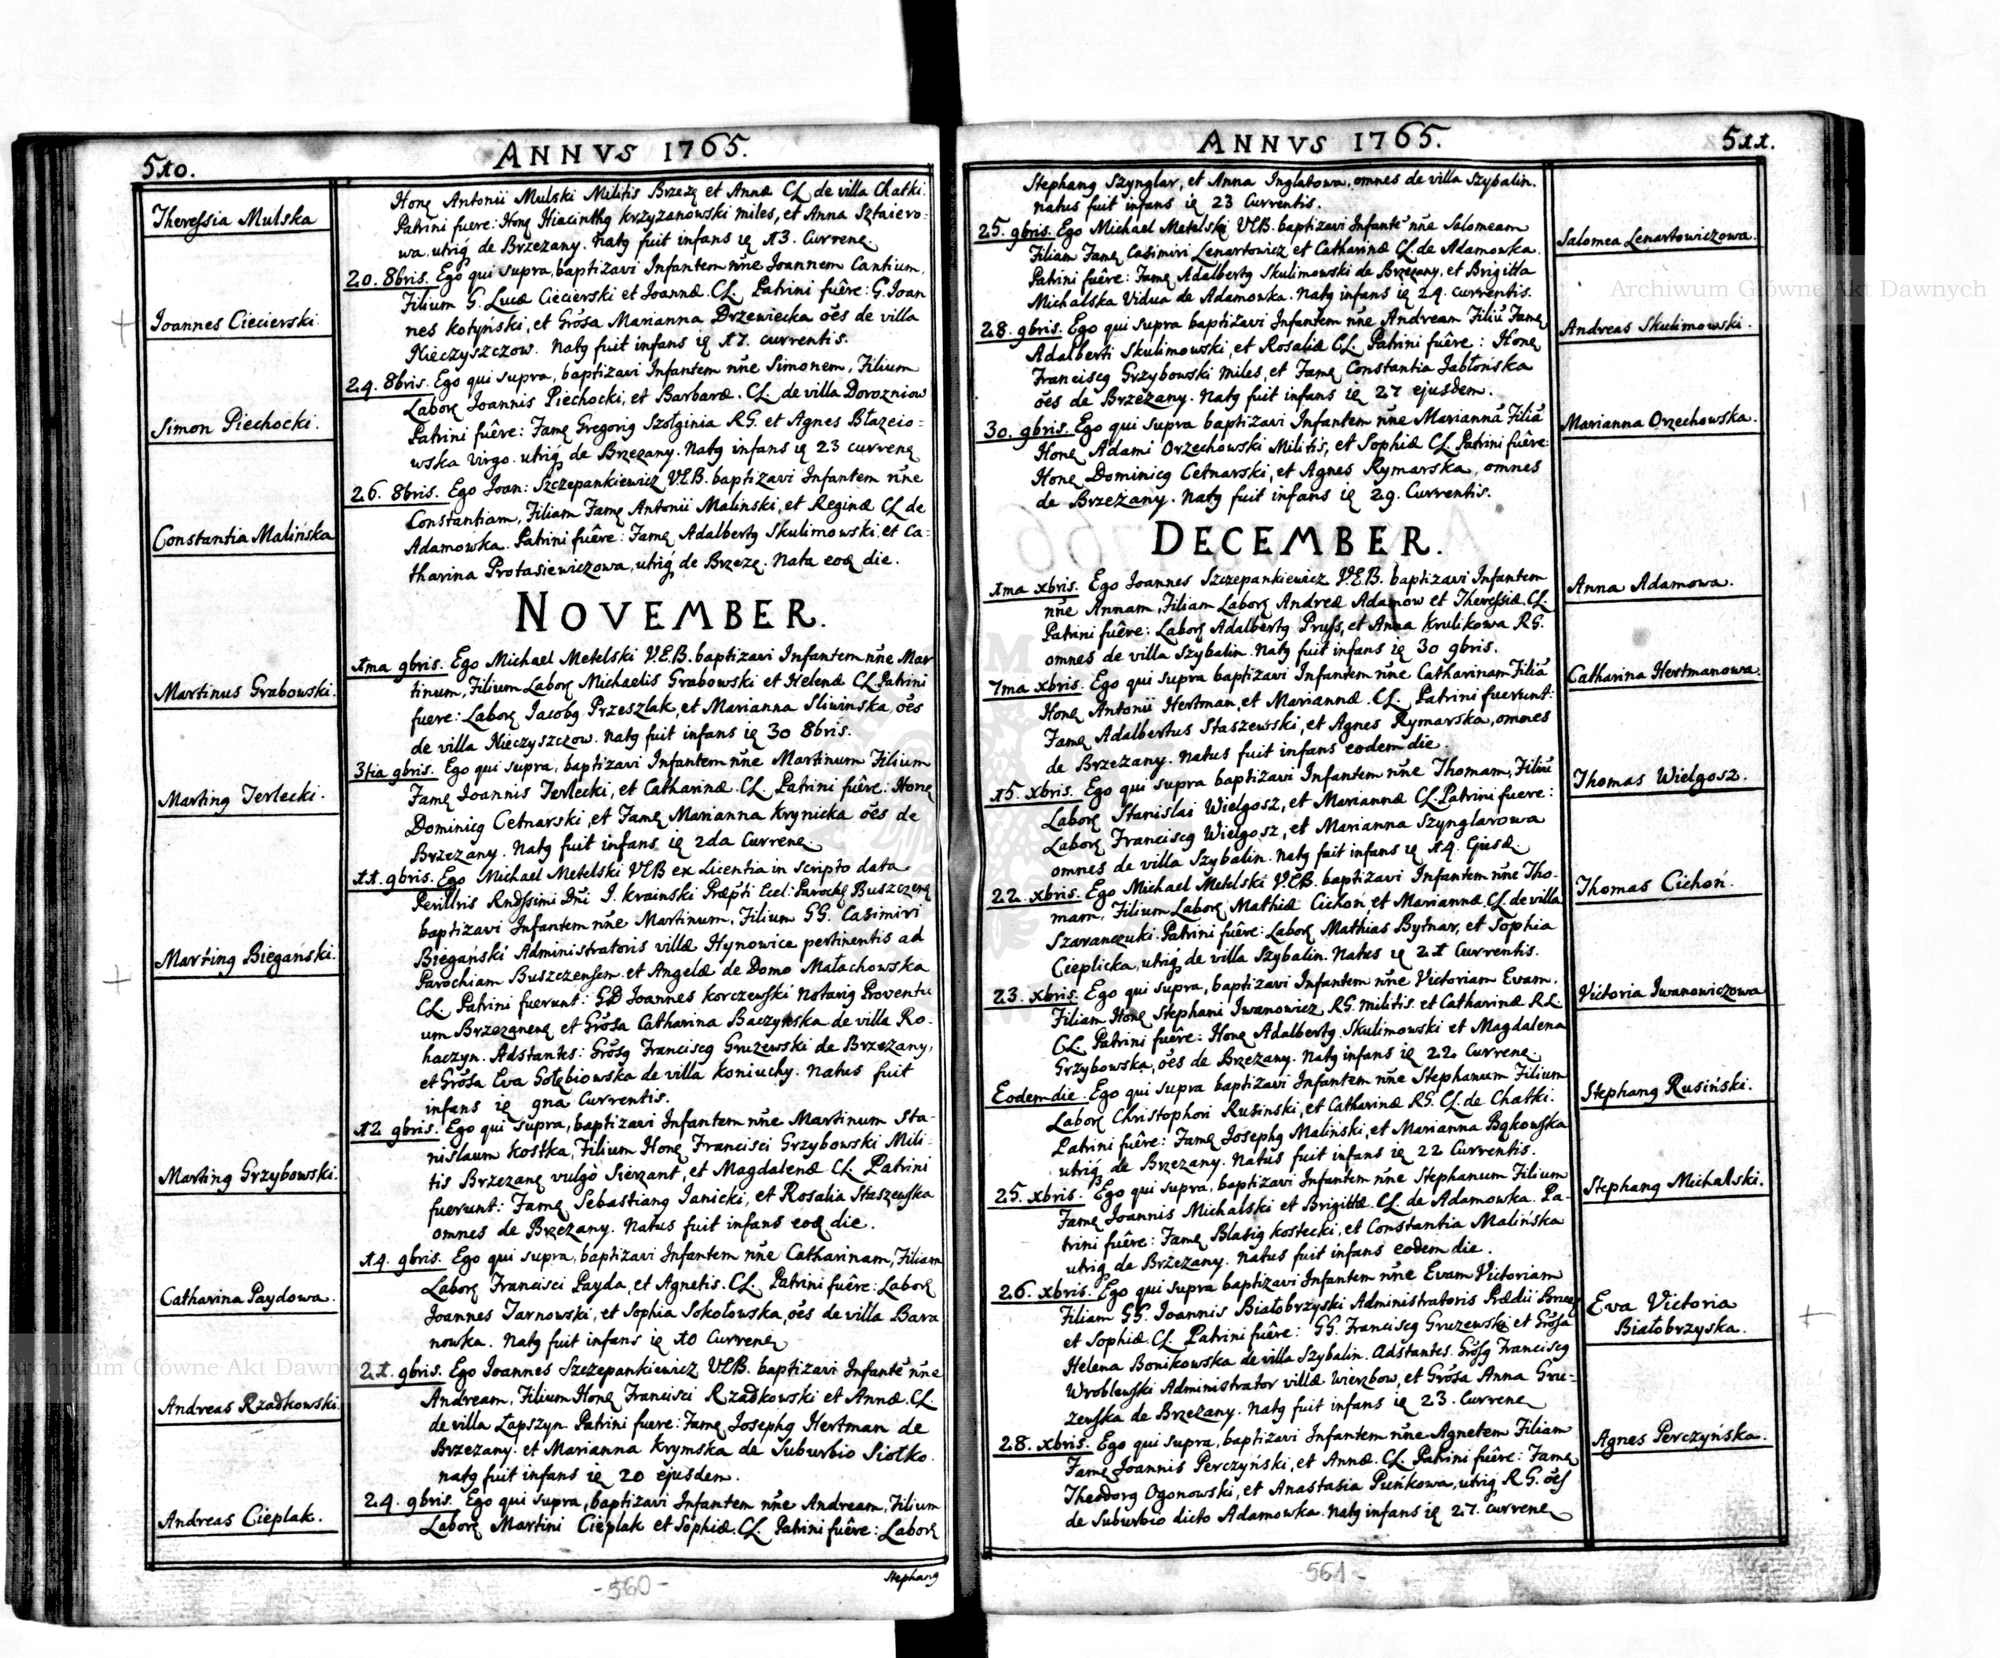 510.
ANNVS 1765.
Theressia Mulska
Honꝫ Antonii Mulski Militis Brzezꝫ et Annæ CL de villa Chatki.
Patrini fuere: Honꝫ Hiacinthꝯ Krzyzanowski miles, et Anna Sztaiero-
wa, utriꝯ de Brzezany. Natꝯ fuit infans ie 13. Currenꝫ
20. 8bris. Ego qui supra, baptizavi Infantem nn̄e Joannem Cantium,
Joannes Ciecierski.
Filium G. Lucæ Ciecierski et Joannæ. CL. Patrini fuêre: G. Joan
nes Kotyński, et Grōsa Marianna Drzewiecka ōes de villa
Nieczyszczow. Natꝯ fuit infans ie 17. currentis.
24. 8bris. Ego qui supra, baptizavi Infantem nn̄e Simonem, Filium
Simon Piechocki.
Laborꝫ Joannis Piechocki, et Barbaræ. CL. de villa Dorozniow
Patrini fuêre: Famꝫ Gregoriꝯ Szołginia RG. et Agnes Błazeio-
wska virgo. utriꝯ de Brzezany. Natꝯ infans ie 23 currenꝫ
26. 8bris. Ego Joan: Szczepankiewicz VEB. baptizavi Infantem nn̄e
Constantia Malińska
Constantiam, Filiam Famꝫ Antonii Malinski, et Reginæ CL de
Adamowka. Patrini fuêre: Famꝫ Adalbertꝯ Skulimowski, et Ca-
tharina Protasiewiczowa, utriꝯ de Brzezꝫ. Nata eoꝺ die.
NOVEMBER.
1ma 9bris. Ego Michael Metelski V.E.B. baptizavi Infantem nn̄e Mar
Martinus Grabowski.
tinum, Filium Laborꝫ Michaelis Grabowski et Helenæ CL Patrini
fuere: Laborꝫ Jacobꝯ Przeszlak, et Marianna Sliwinska, ōes
de villa Nieczyszczow. Natꝯ fuit infans ie 30 8bris.
3tia 9bris. Ego qui supra, baptizavi Infantem nn̄e Martinum Filium
Martinꝯ Terlecki.
Famꝫ Joannis Terlecki, et Catharinæ. CL. Patrini fuêre: Honꝫ
Dominicꝯ Cetnarski, et Famꝫ Marianna Krynicka ōes de
Brzezany. Natꝯ fuit infans ie 2da Currenꝫ.
11. 9bris. Ego Michael Metelski VEB ex Licentia in scripto data
Perillris Rndssimi Dn̄i J. Krainski Præpti Eccl: Parochꝫ Buszczenꝫ
baptizavi Infantem nn̄e Martinum, Filium GG. Casimiri
Martinꝯ Biegański.
Biegański Administratoris villæ Hynowice pertinentis ad
Parochiam Buszczensem et Angelæ de Domo Małachowska
CL. Patrini fuerunt: GD Joannes Korczewski Notariꝯ Proventu
um Brzezanenꝫ et Grōsa Catharina Baczyńska de villa Ro-
haczyn. Adstantes: Grōsꝯ Franciscꝯ Gruzewski de Brzezany,
et Grōsa Eva Gołębiowska de villa Koniuchy. Natus fuit
infans ie 9na Currentis.
12 9bris. Ego qui supra, baptizavi Infantem nn̄e Martinum Sta-
nislaum Kostka, Filium Honꝫ Francisci Grzybowski Mili-
Martinꝯ Grzybowski.
tis Brzezanꝫ vulgò Sierzant, et Magdalenæ CL. Patrini
fuerunt: Famꝫ Sebastianꝯ Janicki, et Rosalia Staszewska
omnes de Brzezany. Natus fuit infans eoꝺ die.
14. 9bris. Ego qui supra, baptizavi Infantem nn̄e Catharinam, Filiam
Catharina Paydowa.
Laborꝫ Francisci Payda, et Agnetis. CL. Patrini fuêre: Laborꝫ
Joannes Tarnowski, et Sophia Sokolowska, ōes de villa Bara
nowka. Natꝯ fuit infans ie 10 Currenꝫ
21. 9bris. Ego Joannes Szczepankiewicz VEB. baptizavi Infantē nn̄e
Andreas Rzadkowski.
Andream, Filium Honꝫ Francisci Rzadkowski et Annæ. CL.
de villa Łapszyn. Patrini fuere: Famꝫ Josephꝯ Hertman de
Brzezany. et Marianna Krymska de Suburbio Siołko.
Natꝯ fuit infans ie 20 ejusdem.
24. 9bris. Ego qui supra, baptizavi Infantem nn̄e Andream, Filium
Andreas Cieplak.
Laborꝫ Martini Cieplak et Sophiæ. CL. Patrini fuêre: Laborꝫ
Stephanꝯ
-560-
ANNVS 1765.
511.
Stephanꝯ Szynglar, et Anna Inglatowa, omnes de villa Szybalin.
Natus fuit infans ie 23 Currentis.
25. 9bris. Ego Michael Metelski VEB. baptizavi Infantē nn̄e Salomeam
Salomea Lenartowiczowa.
Filiam Famꝫ Casimiri Lenartowicz et Catharinæ CL. de Adamowka.
Patrini fuêre: Famꝫ Adalbertꝯ Skulimowski de Brzezany, et Brigitta
Michalska Vidua de Adamowka. Natꝯ infans ie 24. currentis.
28. 9bris. Ego qui supra baptizavi Infantem nn̄e Andream Filiū Famꝫ
Andreas Skulimowski.
Adalberti Skulimowski, et Rosaliæ CL. Patrini fuêre: Honꝫ
Franciscꝯ Grzybowski Miles, et Famꝫ Constantia Jabłońska
ōes de Brzezany. Natꝯ fuit infans ie 27 ejusdem.
30. 9bris. Ego qui supra baptizavi Infantem nn̄e Mariannā Filiā
Marianna Orzechowska.
Honꝫ Adami Orzechowski Militis, et Sophiæ CL. Patrini fuêre:
Honꝫ Dominicꝯ Cetnarski, et Agnes Rymarska, omnes
de Brzezany. Natꝯ fuit infans ie 29. Currentis.
DECEMBER.
1ma xbris. Ego Joannes Szczepankiewicz V.E.B. baptizavi Infantem
Anna Adamowa.
nn̄e Annam, Filiam Laborꝫ Andreæ Adamow et Theressiæ CL.
Patrini fuêre: Laborꝫ Adalbertꝯ Pruss, et Anna Krulikowa RG.
omnes de villa Szybalin. Natꝯ fuit infans ie 30 9bris.
7ma xbris. Ego qui supra baptizavi Infantem nn̄e Catharinam Filiā
Catharina Hertmanowa.
Honꝫ Antonii Hertman, et Mariannæ. CL. Patrini fuerunt:
Famꝫ Adalbertus Staszewski, et Agnes Rymarska, omnes
de Brzezany. Natus fuit infans eodem die.
15. xbris. Ego qui supra baptizavi Infantem nn̄e Thomam, Filiū
Thomas Wielgosz.
Laborꝫ Stanislai Wielgosz, et Mariannæ CL. Patrini fuere:
Laborꝫ Franciscꝯ Wielgosz, et Marianna Szynglarowa
omnes de villa Szybalin. Natꝯ fuit infans ie 14. Ejusd.
22. xbris. Ego Michael Metelski V.E.B. baptizavi Infantem nn̄e Tho-
Thomas Cichoń.
mam, Filium Laborꝫ Mathiæ Cichoń, et Mariannæ. CL. de villa
Szaranczuki. Patrini fuêre: Laborꝫ Mathias Bytnar, et Sophia
Cieplicka, utriꝯ de villa Szybalin. Natus ie 21 Currentis.
23. xbris. Ego qui supra, baptizavi Infantem nn̄e Victoriam Evam,
Victoria Iwanowiczowa
Filiam Honꝫ Stephani Iwanowicz RG. militis. et Catharinæ R.L.
CL. Patrini fuêre: Honꝫ Adalbertꝯ. Skulimowski et Magdalena
Grzybowska, ōes de Brzezany. Natꝯ infans ie 22 Currenꝫ.
Eodem die. Ego qui supra baptizavi Infantem nn̄e Stephanum Filium
Stephanꝯ Rusiński.
Laborꝫ Christophori Rusinski, et Catharinæ RG. CL. de Chatki.
Patrini fuêre: Famꝫ Josephꝯ Maliński, et Marianna Bąkowska
utriꝯ de Brzezany. Natus fuit infans ie 22 Currentis.
25. xbris. Ego qui supra, baptizavi Infantem nn̄e Stephanum Filium
Stephanꝯ Michalski.
Famꝫ Joannis Michalski et Brigittæ. CL. de Adamowka. Pa-
trini fuêre: Famꝫ Blasiꝯ Kostecki, et Constantia Malińska
utriꝯ de Brzezany. Natus fuit infans eodem die.
26. xbris. Ego qui supra baptizavi Infantem nn̄e Evam Victoriam
Eva Victoria
Białobrzyska.
Filiam GG. Joannis Białobrzyski Administratoris Prædii Brzez
et Sophiæ CL. Patrini fuêre: GG. Franciscꝯ Gruzewski et Grōsa
Helena Bonikowska de villa Szybalin. Adstantes. Grōsꝯ Franciscꝯ
Wroblewski Administrator villæ Wierzbow, et Grōsa Anna Gru-
zewska de Brzezany. Natꝯ fuit infans ie 23. Currenꝫ
28. xbris. Ego qui supra, baptizavi Infantem nn̄e Agnetem Filiam
Agnes Perczyńska.
Famꝫ Joannis Perczyński, et Annæ. CL. Patrini fuêre: Famꝫ
Theodorꝯ Ogonowski, et Anastasia Puńkowa, utriꝯ R.G. ōes
de Suburbio dicto Adamowka. Natꝯ infans ie 27. currenꝫ
561-
Archiwum Główne Akt Dawnych
Archiwum Główne Akt Dawnych